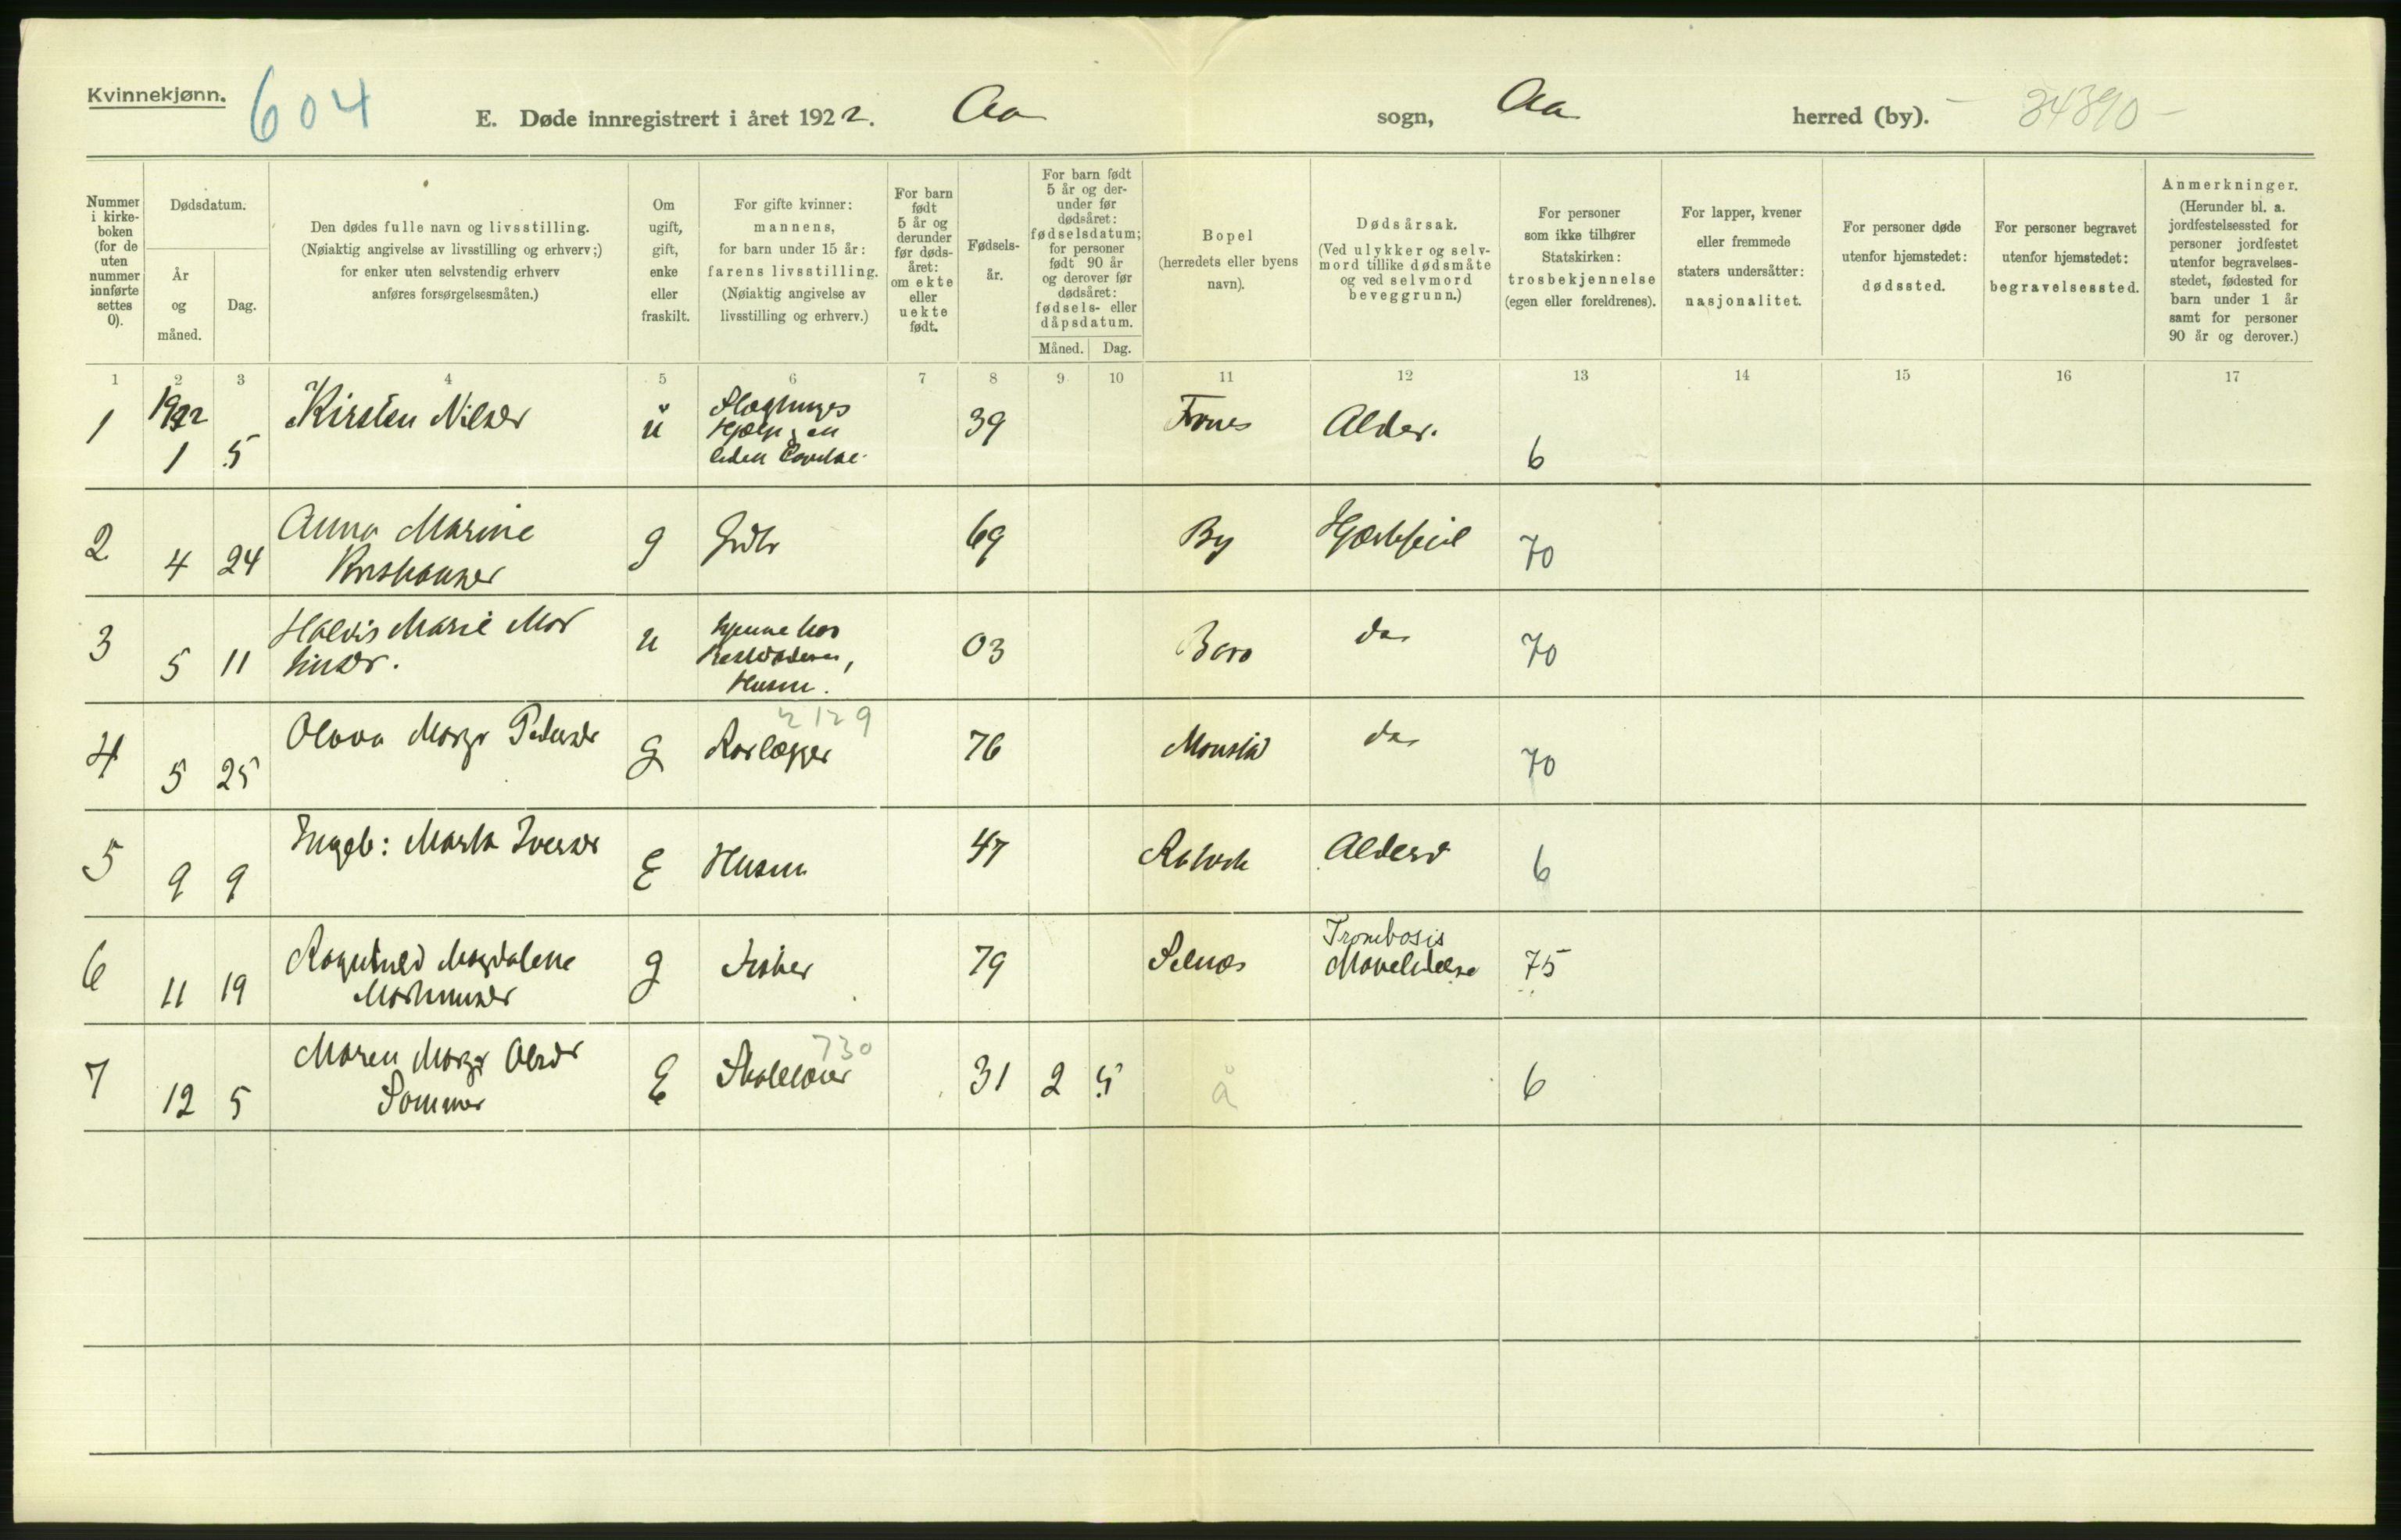 Kvinnekjønn.
604
E. Døde innregistrert i året 1922. Aa sogn, Aa herred (by).
34390
Nummer i kirkeboken (for de uten nummer innførte settes 0).
Dødsdatum.
År og måned.
Dag.
Den dødes fulle navn og livsstilling.
(Nøiaktig angivelse av livsstilling og erhverv;)
for enker uten selvstendig erhverv
anføres forsørgelsesmåten.)
Om ugift, gift, enke eller fraskilt.
For gifte kvinner:
mannens,
for barn under 15 år:
farens livsstilling.
(Nøiaktig angivelse av
livsstilling og erhverv.)
For barn født 5 år og derunder før dødsåret: om ekte eller uekte født.
Fødselsår.
For barn født 5 år og derunder før dødsåret: fødselsdatum; for personer født 90 år og derover før dødsåret: fødsels- eller dåpsdatum.
Måned. Dag.
Bopel
(herredets eller byens
navn).
Dødsårsak.
(Ved ulykker og selvmord tillike dødsmåte
og ved selvmord
beveggrunn.)
For personer
som ikke tilhører
Statskirken:
trosbekjennelse
(egen eller foreldrenes).
For lapper, kvener
eller fremmede
staters undersåtter:
nasjonalitet.
For personer døde
utenfor hjemstedet:
dødssted.
For personer begravet
utenfor hjemstedet:
begravelsessted.
Anmerkninger.
(Herunder bl. a.
jordfestelsessted for
personer jordfestet
utenfor begravelses-
stedet, fødested for
barn under 1 år
samt for personer
90 år og derover.)
1 2 3 4 5 6 7 8 9 10 11 12 13 14 15 16 17
1 1922 1 5 Kirsten Nilser u 39 Alder. 6
2 4 24 Anna Marine g 69 By Hjertefeil 70
3 5 11 Marie u Husm. 03 do 70
4 5 25 Margr Peders g 2129 76 Monstad do 70
5 9 9 Ingeb: Marta Ivers E Husm 47 Alderd 6
6 11 19 Ragnhild Magdalene g Fisker 79 Selnes Trombosis 75
7 12 5 Maren Margr Olsdr Sommer E 730 31 2 5 å 6